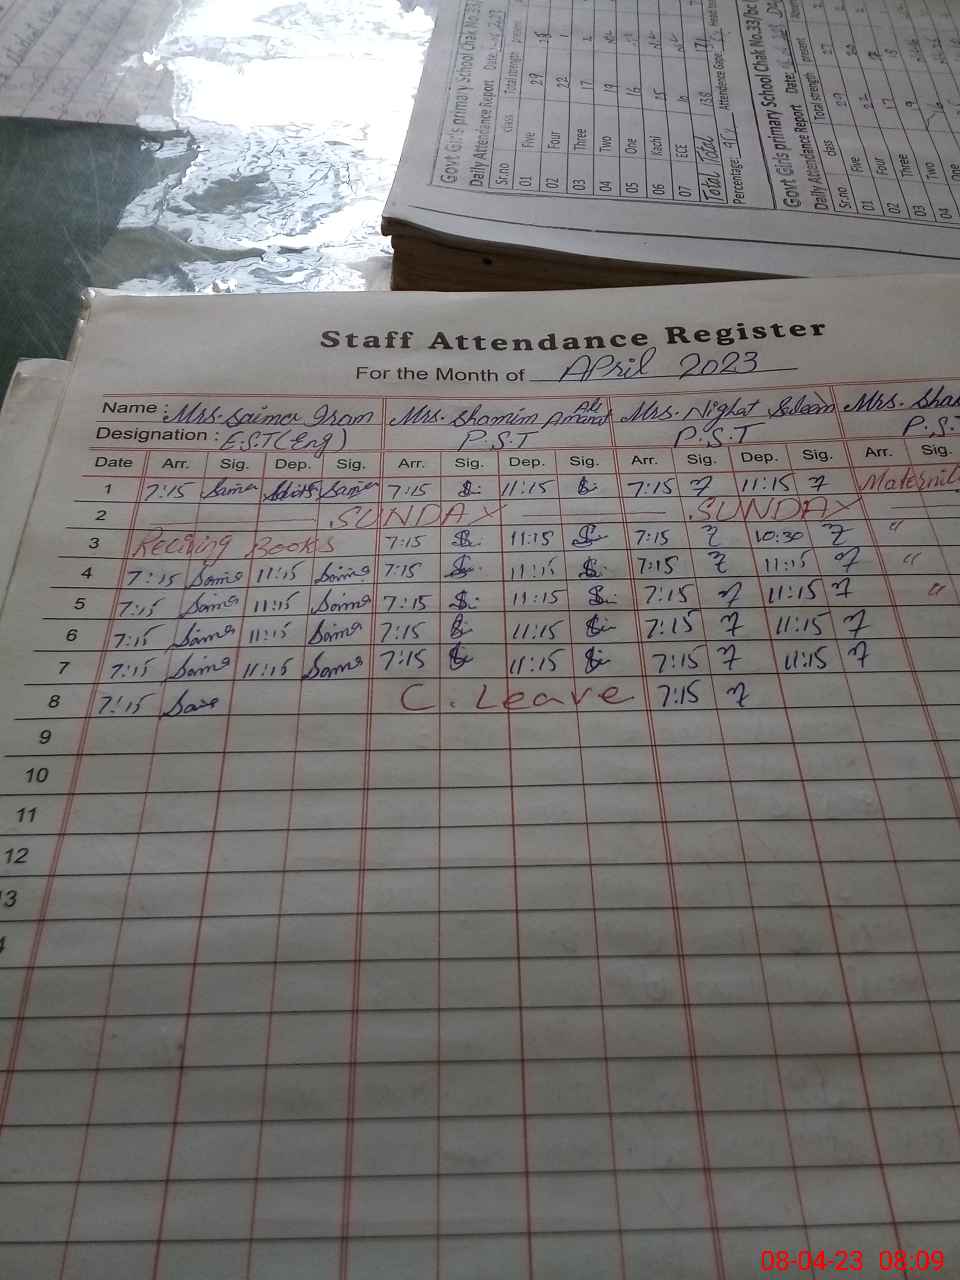 Govt Girls primary School Chak No.33/
Daily Attendance Report Date:
Sr.no class Total strength present
01 Five 29 28
02 Four 22
03 Three 17
04 Two 19
05 One 16
06 Kachi 25
07 ECE 10
Total Total 138
Percentage: Attendence Gape:
Govt Girls primary School Chak No.33/
Daily Attendance Report Date:
Sr.no class Total strength present
01 Five 29 27
02 Four 22 20
03 Three 17
04 Two
One
Staff Attendance Register
For the Month of April 2023
Name : Mrs. Saima Iram Mrs. Shamim Amanat Ali Mrs. Nighat Saleem Mrs.
Designation : E.S.T (Eng) P.S.T P.S.T P.S.T
Date Arr. Sig. Dep. Sig. Arr. Sig. Dep. Sig. Arr. Sig. Dep. Sig. Arr. Sig.
1 7:15 Saima Saima 7:15 11:15 7:15 11:15
2 SUNDAY SUNDAY
3 Reciving Books 7:15 11:15 7:15 10:30 "
4 7:15 Saima 11:15 Saima 7:15 11:15 7:15 11:15 "
5 7:15 Saima 11:15 Saima 7:15 11:15 7:15 11:15 "
6 7:15 Saima 11:15 Saima 7:15 11:15 7:15 11:15
7 7:15 Saima 11:15 Saima 7:15 11:15 7:15 11:15
8 7:15 C. Leave 7:15
9
10
11
12
08-04-23 08:09